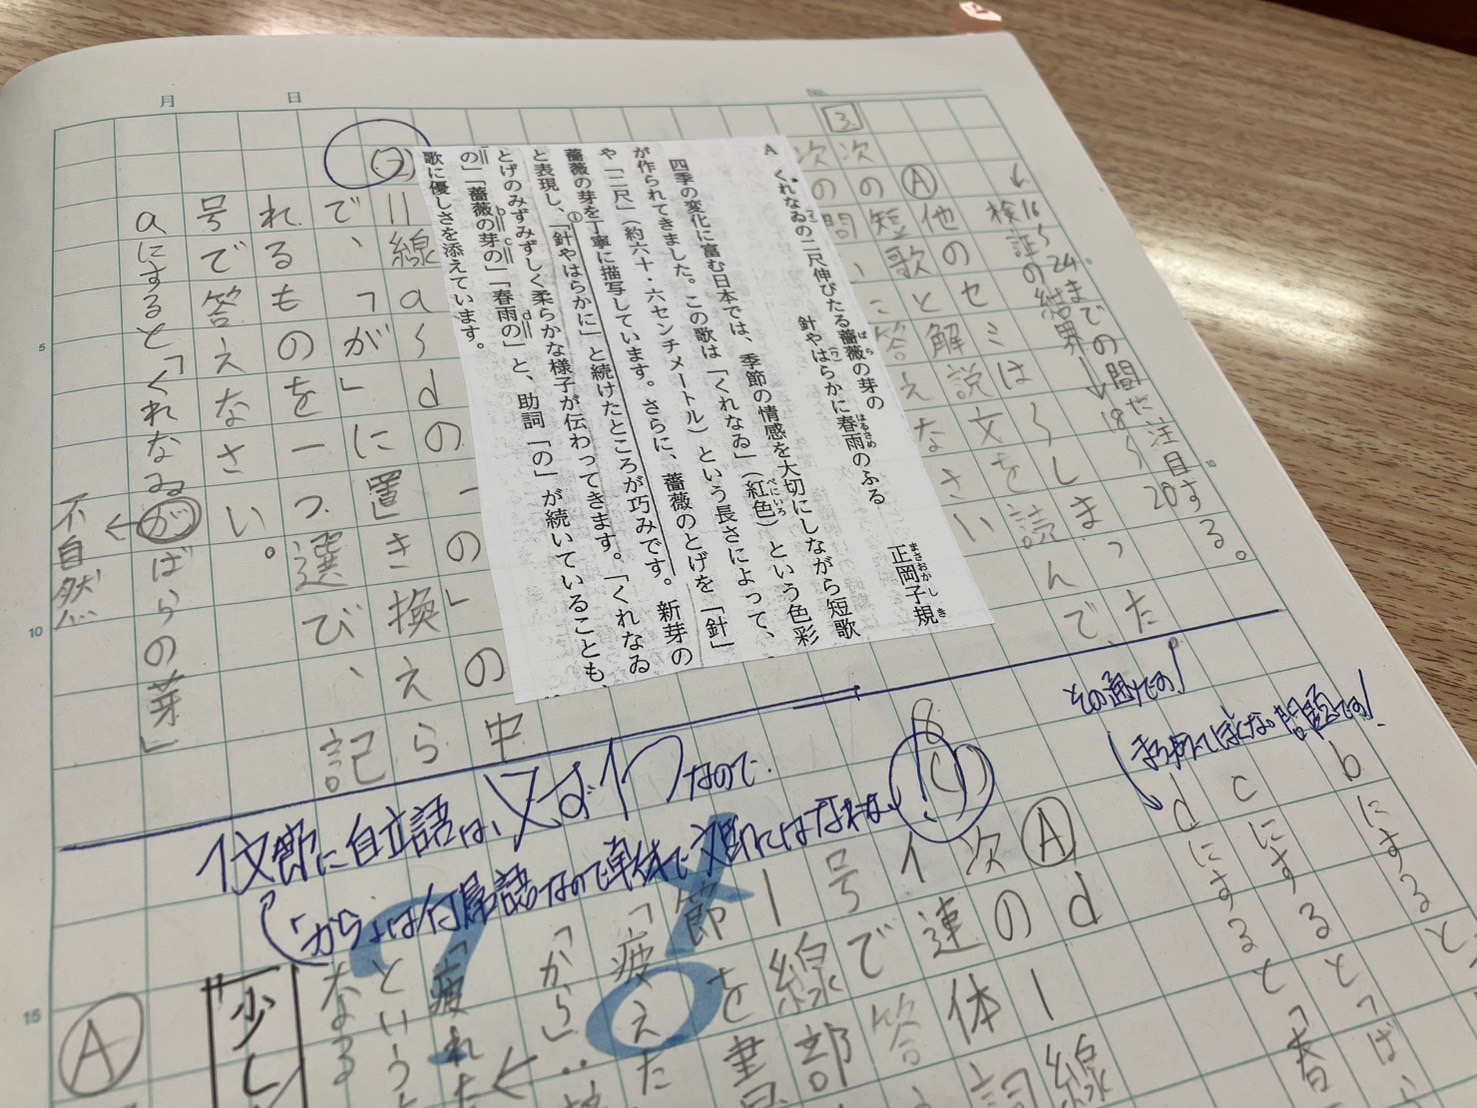 月 日
No.
5
10
15
10
16〜24までの間に注目する。
検証の結果→18〜20
他のセミは〜しまった。
3
次の短歌と解説文を読んで、
次の問いに答えなさい
A くれなゐの二尺伸びたる薔薇の芽の
針やはらかに春雨のふる
正岡子規
四季の変化に富む日本では、季節の情感を大切にしながら短歌
が作られてきました。この歌は「くれなゐ」（紅色）という色彩
や「二尺」（約六十・六センチメートル）という長さによって、
薔薇の芽を丁寧に描写しています。さらに、薔薇のとげを「針」
と表現し、「針やはらかに」と続けたところが巧みです。新芽の
とげのみずみずしく柔らかな様子が伝わってきます。「くれなゐ
の」「薔薇の芽の」「春雨の」と、助詞「の」が続いていることも、
歌に優しさを添えています。
(2)
||線a〜dの「の」の中
で、「が」に置き換えら
れるものを一つ選び、記
号で答えなさい。
aにすると「くれなゐがばらの芽」
←
不自然
bにすると、「ば
cにすると「春
dにすると
その通りです!
問題です!
1文節に自立語は、必ず1つなので
「から」は付属語なので単体で文節にはなれない!
A
d
次の
連体詞
号で答
線部
節
を書
「疲えた
「から」
「疲れた
という
なる
少し
A